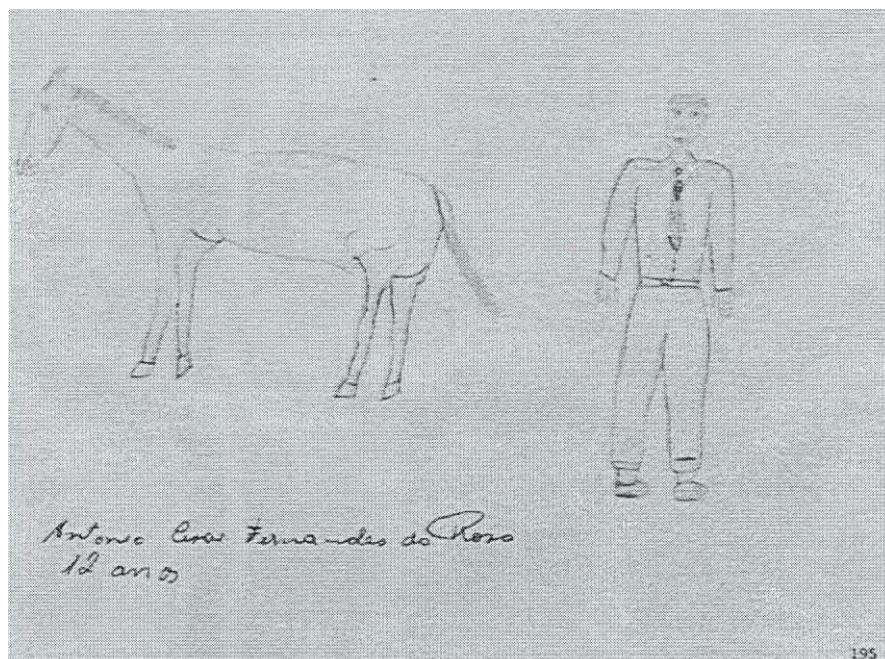 Antonio Cesar Fernandes da Rosa
12 anos
195